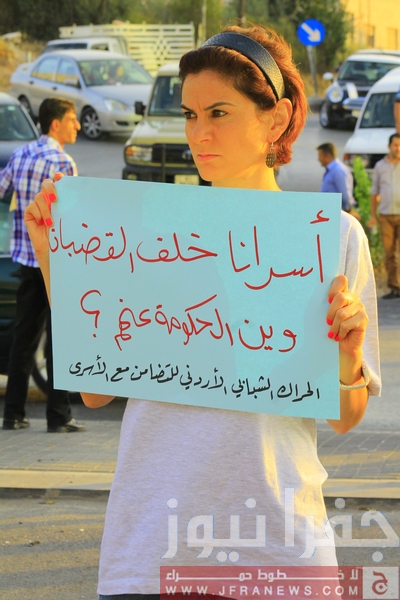 أسرانا خلف القضبان
وين الحكومة عنهم ؟
الحراك الشبابي الأردني للتضامن مع الأسرى
جفرا نيوز
لا خطوط حمراء
WWW.JFRANEWS.COM